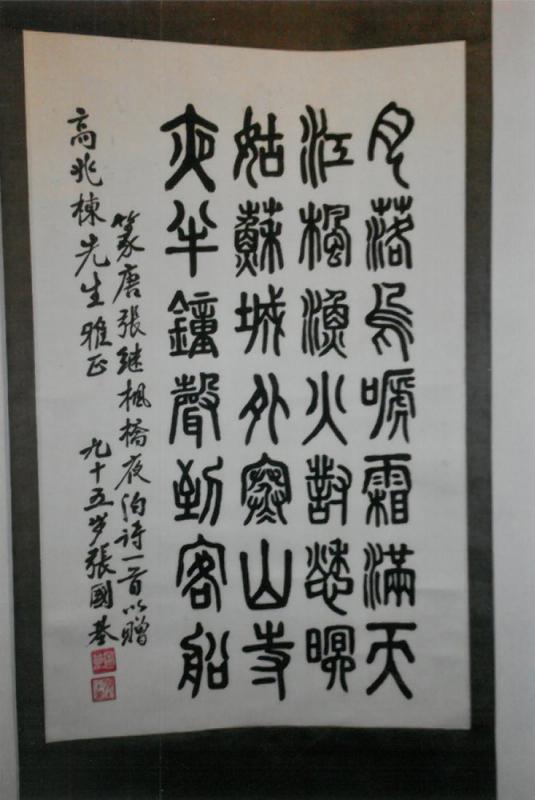 月落烏嗁霜滿天
江楓漁火對愁眠
姑蘇城外寒山寺
夜半鐘聲到客船
篆唐張继楓橋夜泊诗一首以贈
高兆棟先生雅正
九十五岁張國基